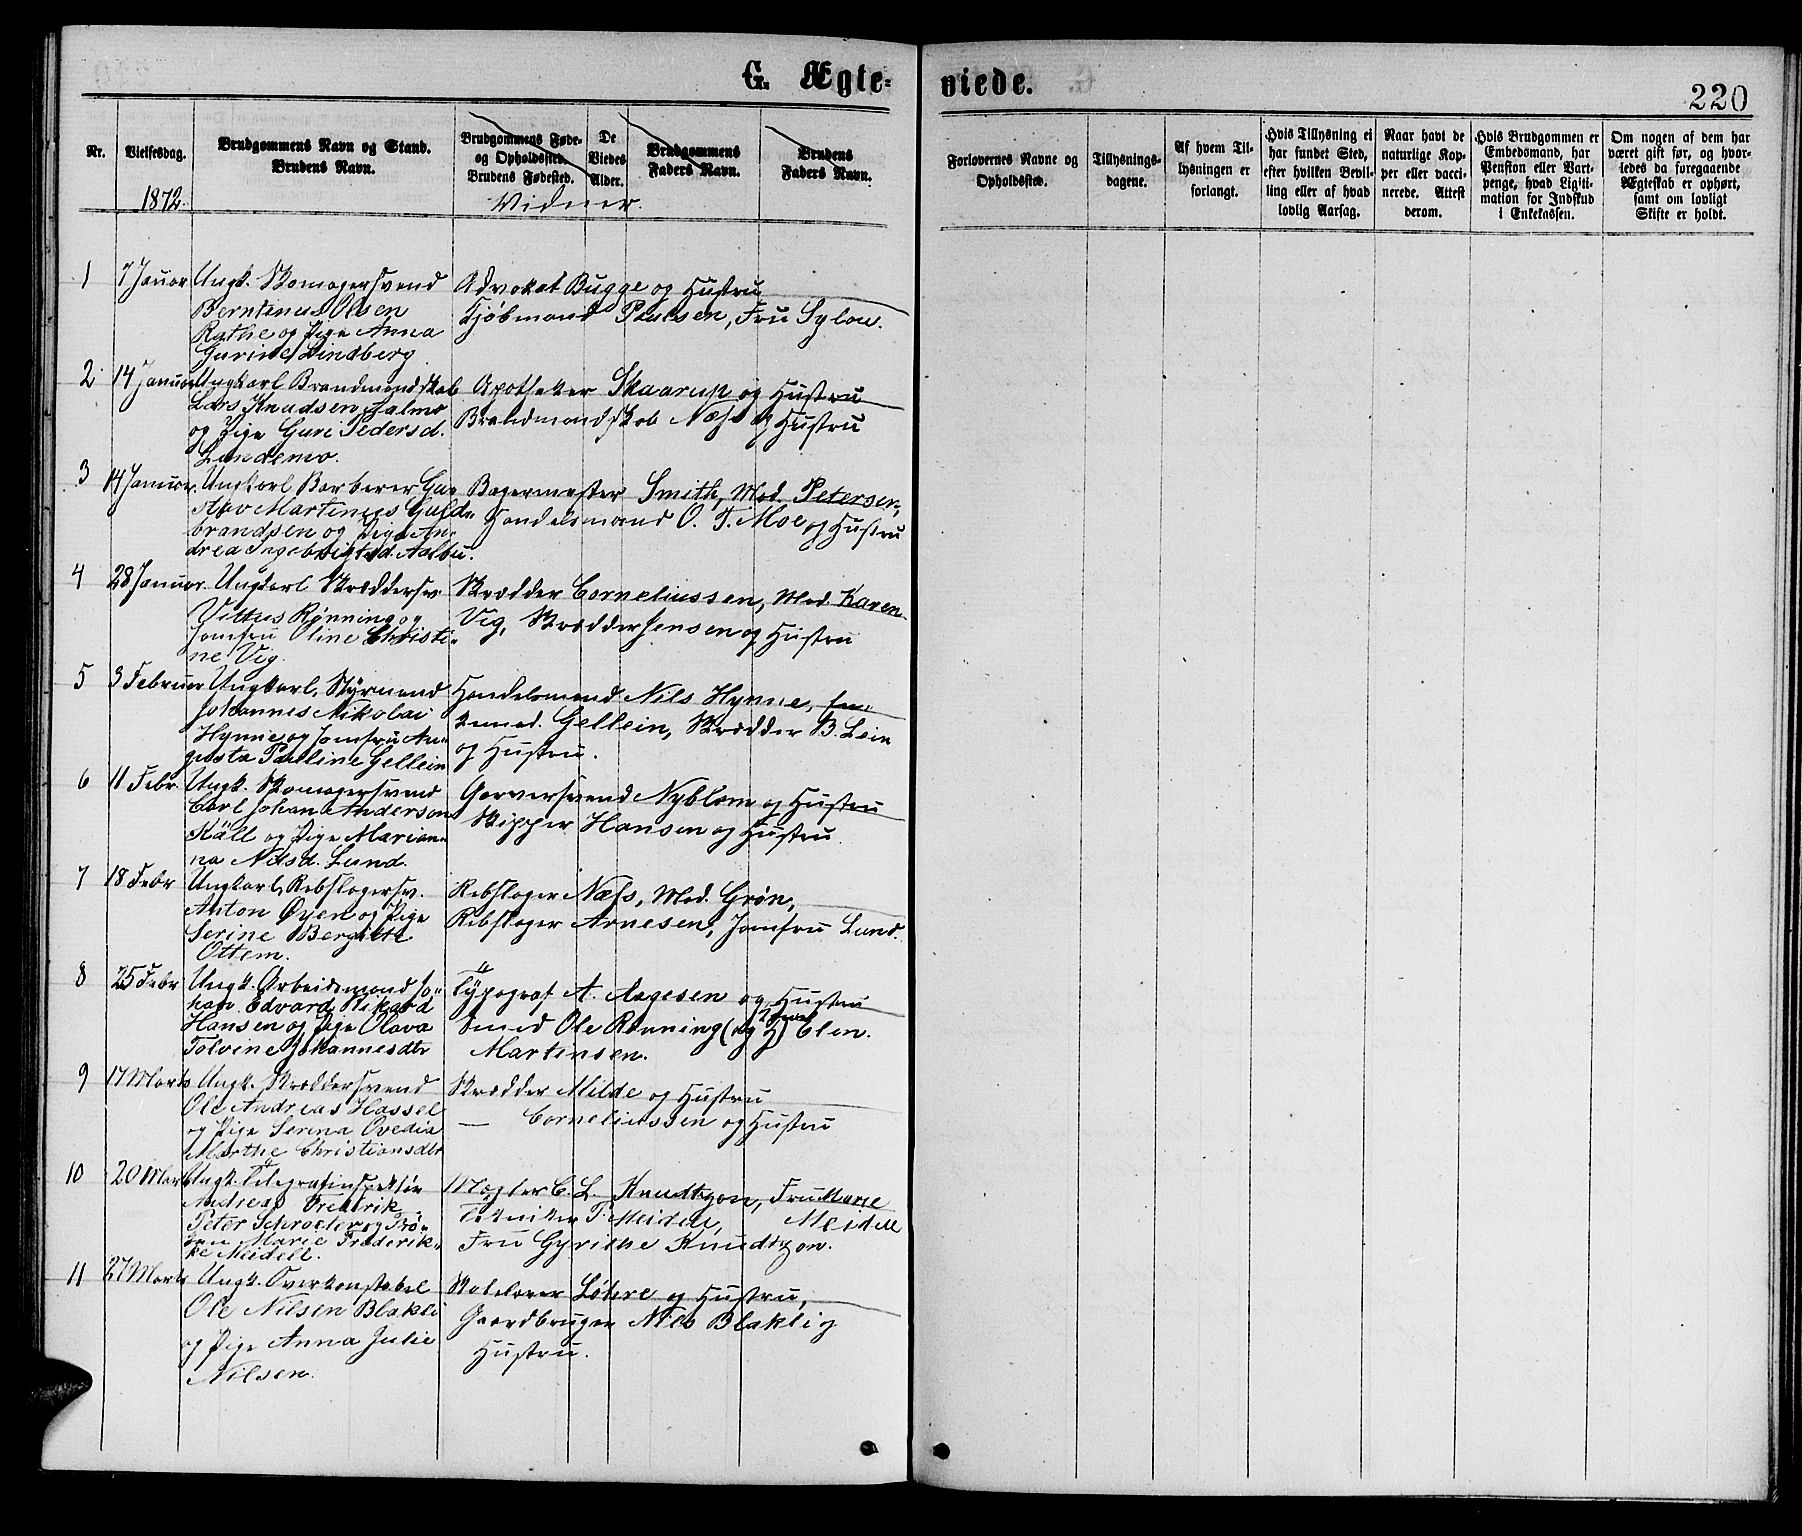 G. Ægte-
viede.
220
Nr.
Vielsesdag.
Brudgommens Navn og Stand.
Brudens Navn.
Brudgommens Føde-
og Opholdssted.
Brudens Fødested.
De
Viedes
Alder.
Brudgommens
Faders Navn.
Brudens
Faders Navn.
Forlovernes Navne og
Opholdssted.
Tillysnings-
dagene.
Af hvem Til-
lysningen er
forlangt.
Hvis Tillysning ei
har fundet Sted,
efter hvilken Bevil-
ling eller af hvad
lovlig Aarsag.
Naar havt de
naturlige Kop-
per eller vacci-
nerede. Attest
derom.
Hvis Brudgommen er
Embedsmand, har
Pension eller Vart-
penge, hvad Ligiti-
mation for Indskud
i Enkekassen.
Om nogen af dem har
været gift før, og hvor-
ledes da foregaaende
Ægteskab er ophørt,
samt om lovligt
Skifte er holdt.
1872.
Vidner.
1 7 Januar Ungk. Skomagersvend
Berntinus Olsen
Rathe og Pige Anna
Gurine Lindberg
Advokat Bugge og Hustru
Kjøbmand Paulsen, Fru Sylow.
2 14 Januar Ungkarl Brandmandskab
Lars Knudsen Aalmo
og Pige Guri Pedersd.
Lundemo.
Apotheker Skaarup og Hustru
Brandmandskab Næss og Hustru
3 14 Januar. Ungkarl Barberer Gu-
stav Martinius Guld-
brandsen og Pige An-
drea Ingebrigtsd. Aalbu.
Bagermester Smith, Mad. Petersen,
Handelsmand O. T. Moe og Hustru
4 28 Januar. Ungkarl Skræddersv.
Vittus Rønning og
Jomfru Oline Christi-
ne Vig.
Skrædder Corneliussen, Mad. Karen
Vig, Skrædder Jensen og Hustru
5 3 Februar Ungkarl, Styrmand
Johannes Nikolai
Hynne og Jomfru Au-
gusta Pauline Gellein
Handelsmand Nils Hynne,
Gellein, Skrædder B. Lein
og Hustru.
6 11 Febr. Ungk. Skomagersvend
Carl Johan Anderson
Käll og Pige Marian-
na Nilsd. Lund.
Garversvend Nyblom og Hustru
Skipper Hansen og Hustru.
7 18 Febr Ungkarl, Rebslagersv.
Anton Øyen og Pige
Serine Bergitte
Ottem.
Rebslager Næss, Mad. Grøn,
Rebslager Arnesen, Jomfru Lund.
8 25 Febr Ungk. Arbeidsmand Jo-
han Edvard Rikard
Hansen og Pige Olava
Tolvine Johannesdtr
Typograf A. Aagesen og Hustru
Smed Ole Rønning (og H) Elen.
Martinsen.
9 17 Marts Ungk. Skræddersvend
Ole Andreas Hassel
og Pige Serina Ovedia
Marthe Christiansdtr
Skrædder Milde og Hustru
— Corneliussen og Hustru
10 20 Marts Ungk. Telegrafinspektør
Andreas Frederik
Peter Schroeter og Frø-
ken Marie Frederik-
ke Meidell.
Mægler C. L. Knudtzon, Fru Marie
Meidell
Tekniker T. Meidell,
Fru Gyrithe Knudtzon.
11 27 Marts Ungk. Overkonstabel
Ole Nilsen Blakli
og Pige Anna Julie
Nilsen.
Skolelærer Løkere og Hustru,
Gaardbruger Nils Blakli og
Hustru.